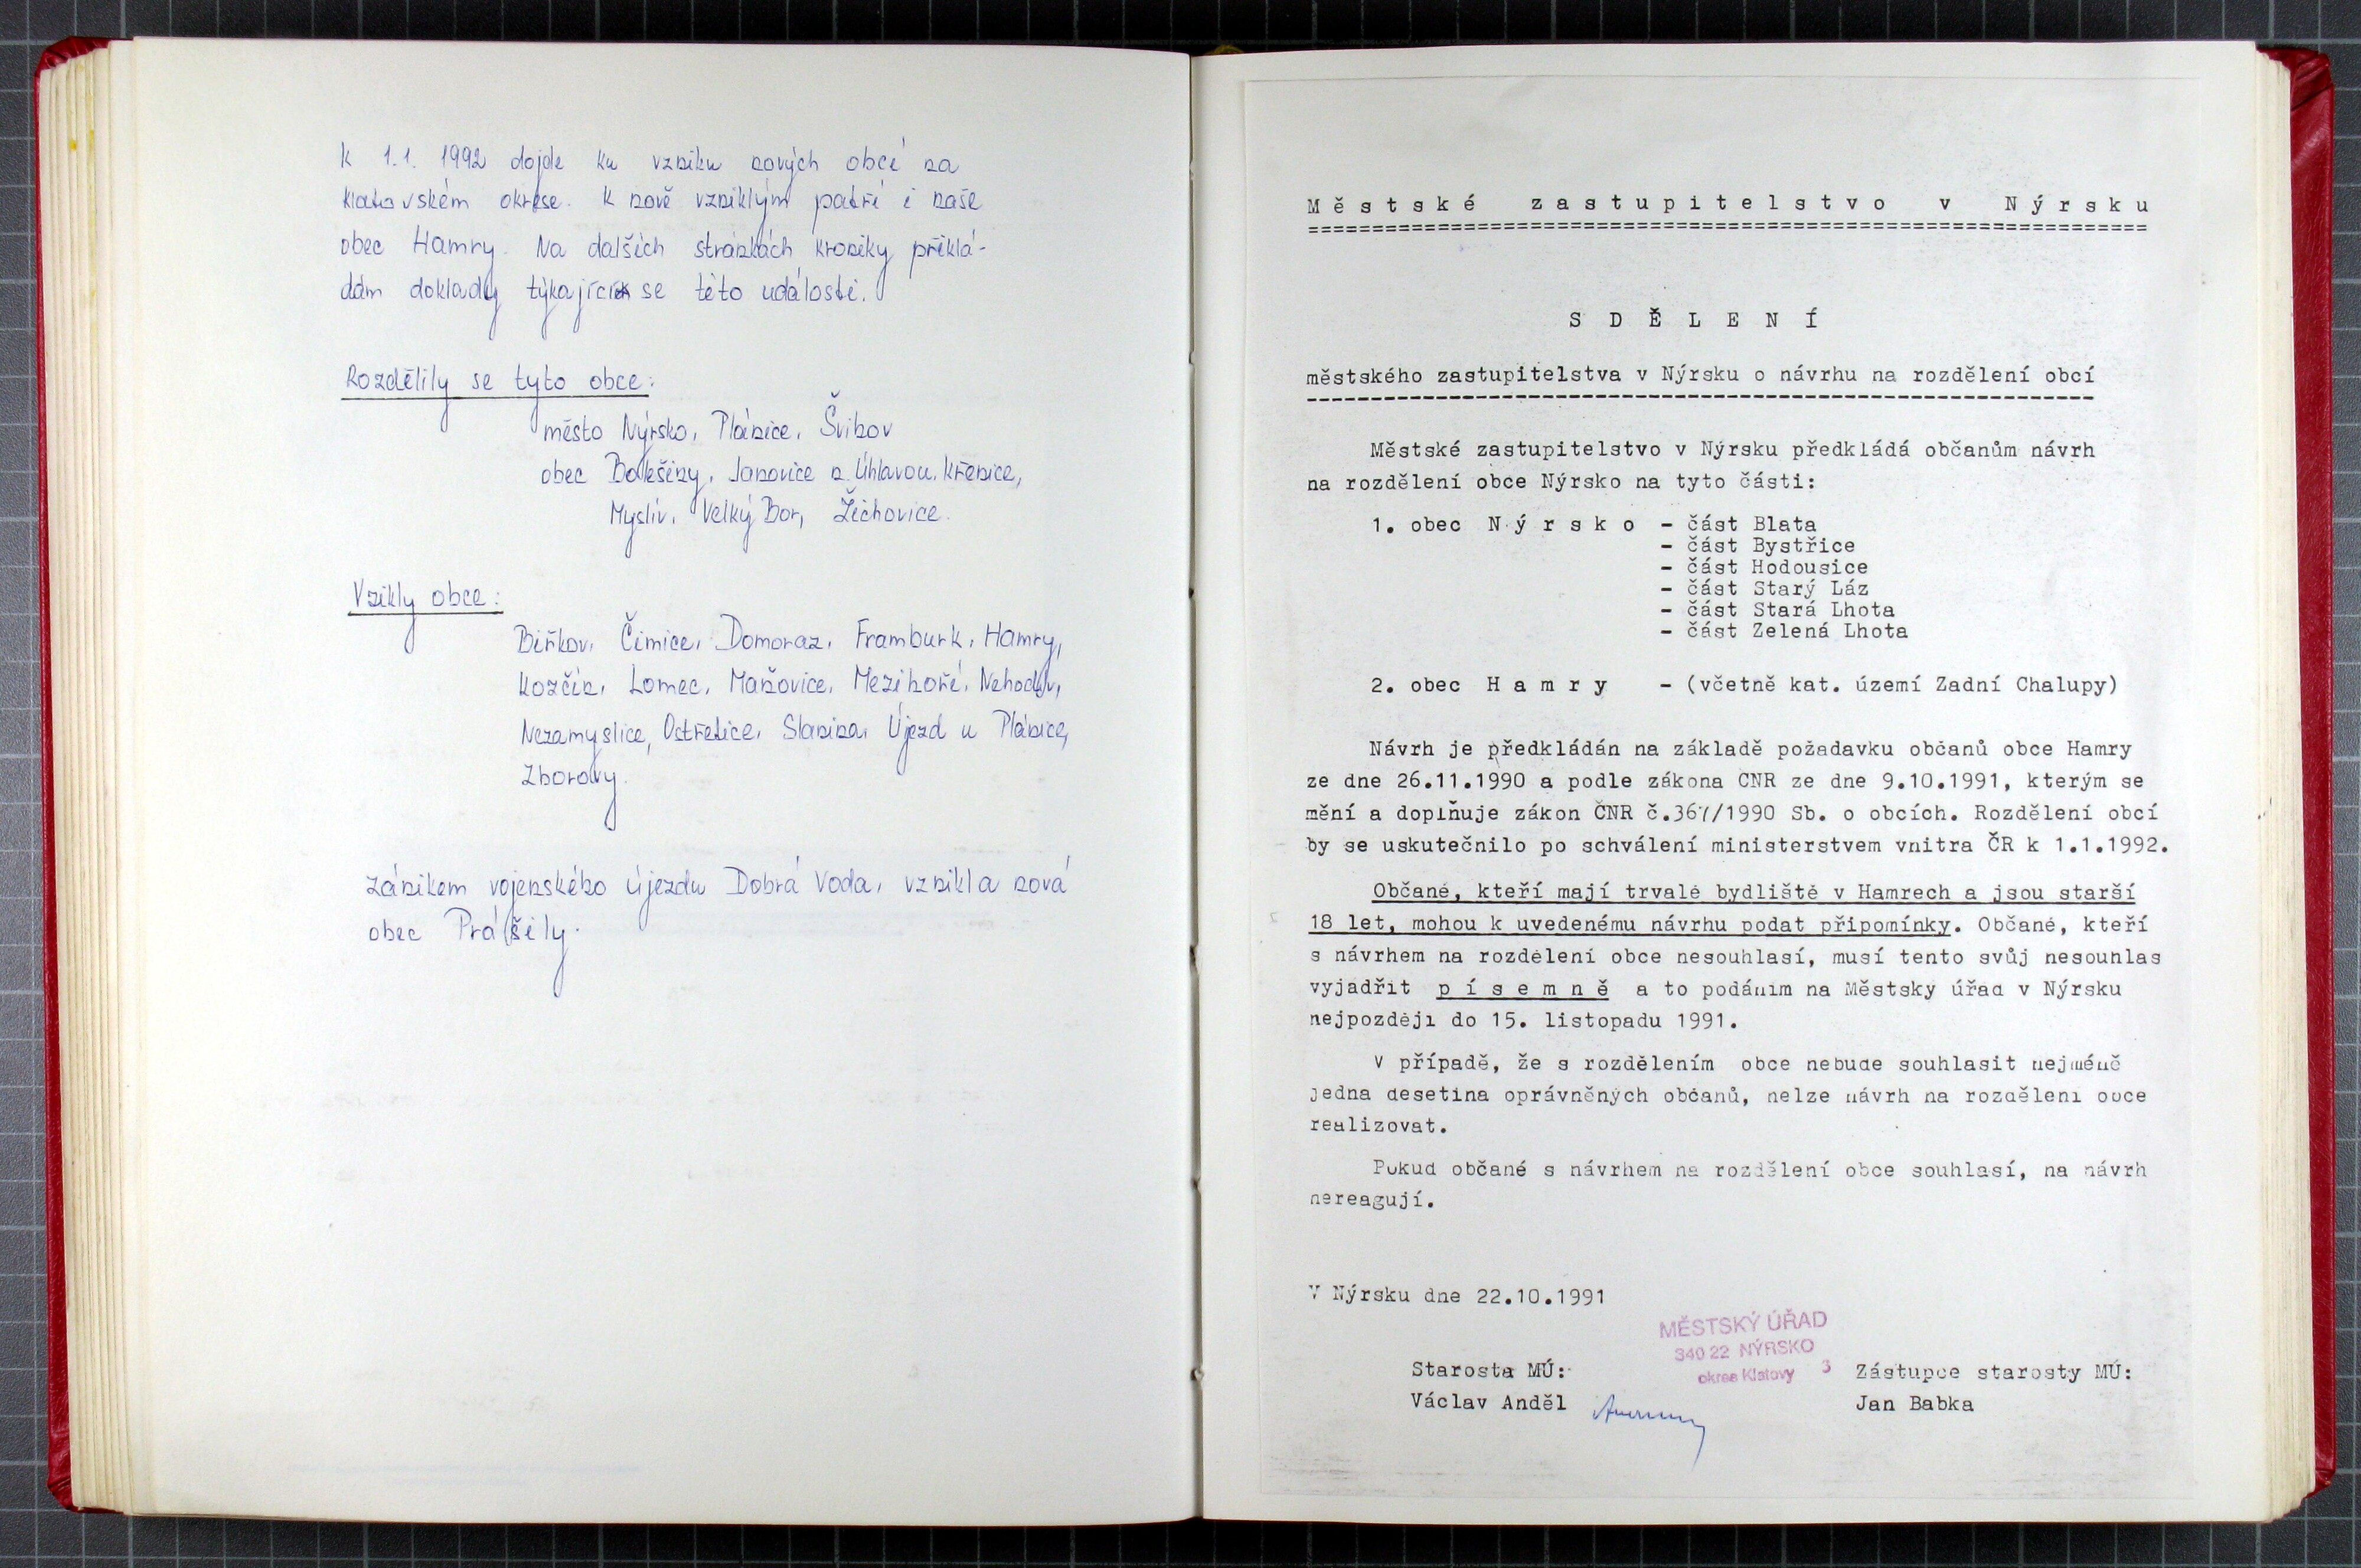 K 1.1. 1992 dojde ku vzniku nových obcí na
klatovském okrese. K nově vzniklým patří i naše
obec Hamry. Na dalších stránkách kroniky přiklá-
dám doklady týkající se této události.
Rozdělily se tyto obce:
město Nýrsko, Plánice, Švihov
obec Bolešiny, Janovice n. Úhlavou, Křenice,
Myslív, Velký Bor, Žichovice.
Vznikly obce:
Biřkov, Čímice, Domoraz, Framburk, Hamry,
Kozčín, Lomec, Maňovice, Mezihoří, Nehodív,
Nezamyslice, Ostřetice, Slatina, Újezd u Plánice,
Zborovy.
Zánikem vojenského újezdu Dobrá Voda, vznikla nová
obec Prášily.
Městské zastupitelstvo v Nýrsku
SDĚLENÍ
městského zastupitelstva v Nýrsku o návrhu na rozdělení obcí
Městské zastupitelstvo v Nýrsku předkládá občanům návrh
na rozdělení obce Nýrsko na tyto části:
1. obec Nýrsko - část Blata
- část Bystřice
- část Hodousice
- část Starý Láz
- část Stará Lhota
- část Zelená Lhota
2. obec Hamry - (včetně kat. území Zadní Chalupy)
Návrh je předkládán na základě požadavku občanů obce Hamry
ze dne 26.11.1990 a podle zákona CNR ze dne 9.10.1991, kterým se
mění a doplňuje zákon ČNR č.367/1990 Sb. o obcích. Rozdělení obcí
by se uskutečnilo po schválení ministerstvem vnitra ČR k 1.1.1992.
Občané, kteří mají trvalé bydliště v Hamrech a jsou starší
18 let, mohou k uvedenému návrhu podat připomínky. Občané, kteří
s návrhem na rozdělení obce nesouhlasí, musí tento svůj nesouhlas
vyjádřit písemně a to podáním na Městský úřad v Nýrsku
nejpozději do 15. listopadu 1991.
V případě, že s rozdělením obce nebude souhlasit nejméně
jedna desetina oprávněných občanů, nelze návrh na rozdělení obce
realizovat.
Pokud občané s návrhem na rozdělení obce souhlasí, na návrh
nereagují.
V Nýrsku dne 22.10.1991
MĚSTSKÝ ÚŘAD
340 22 NÝRSKO
okres Klatovy 3
Starosta MÚ:
Václav Anděl
Zástupce starosty MÚ:
Jan Babka